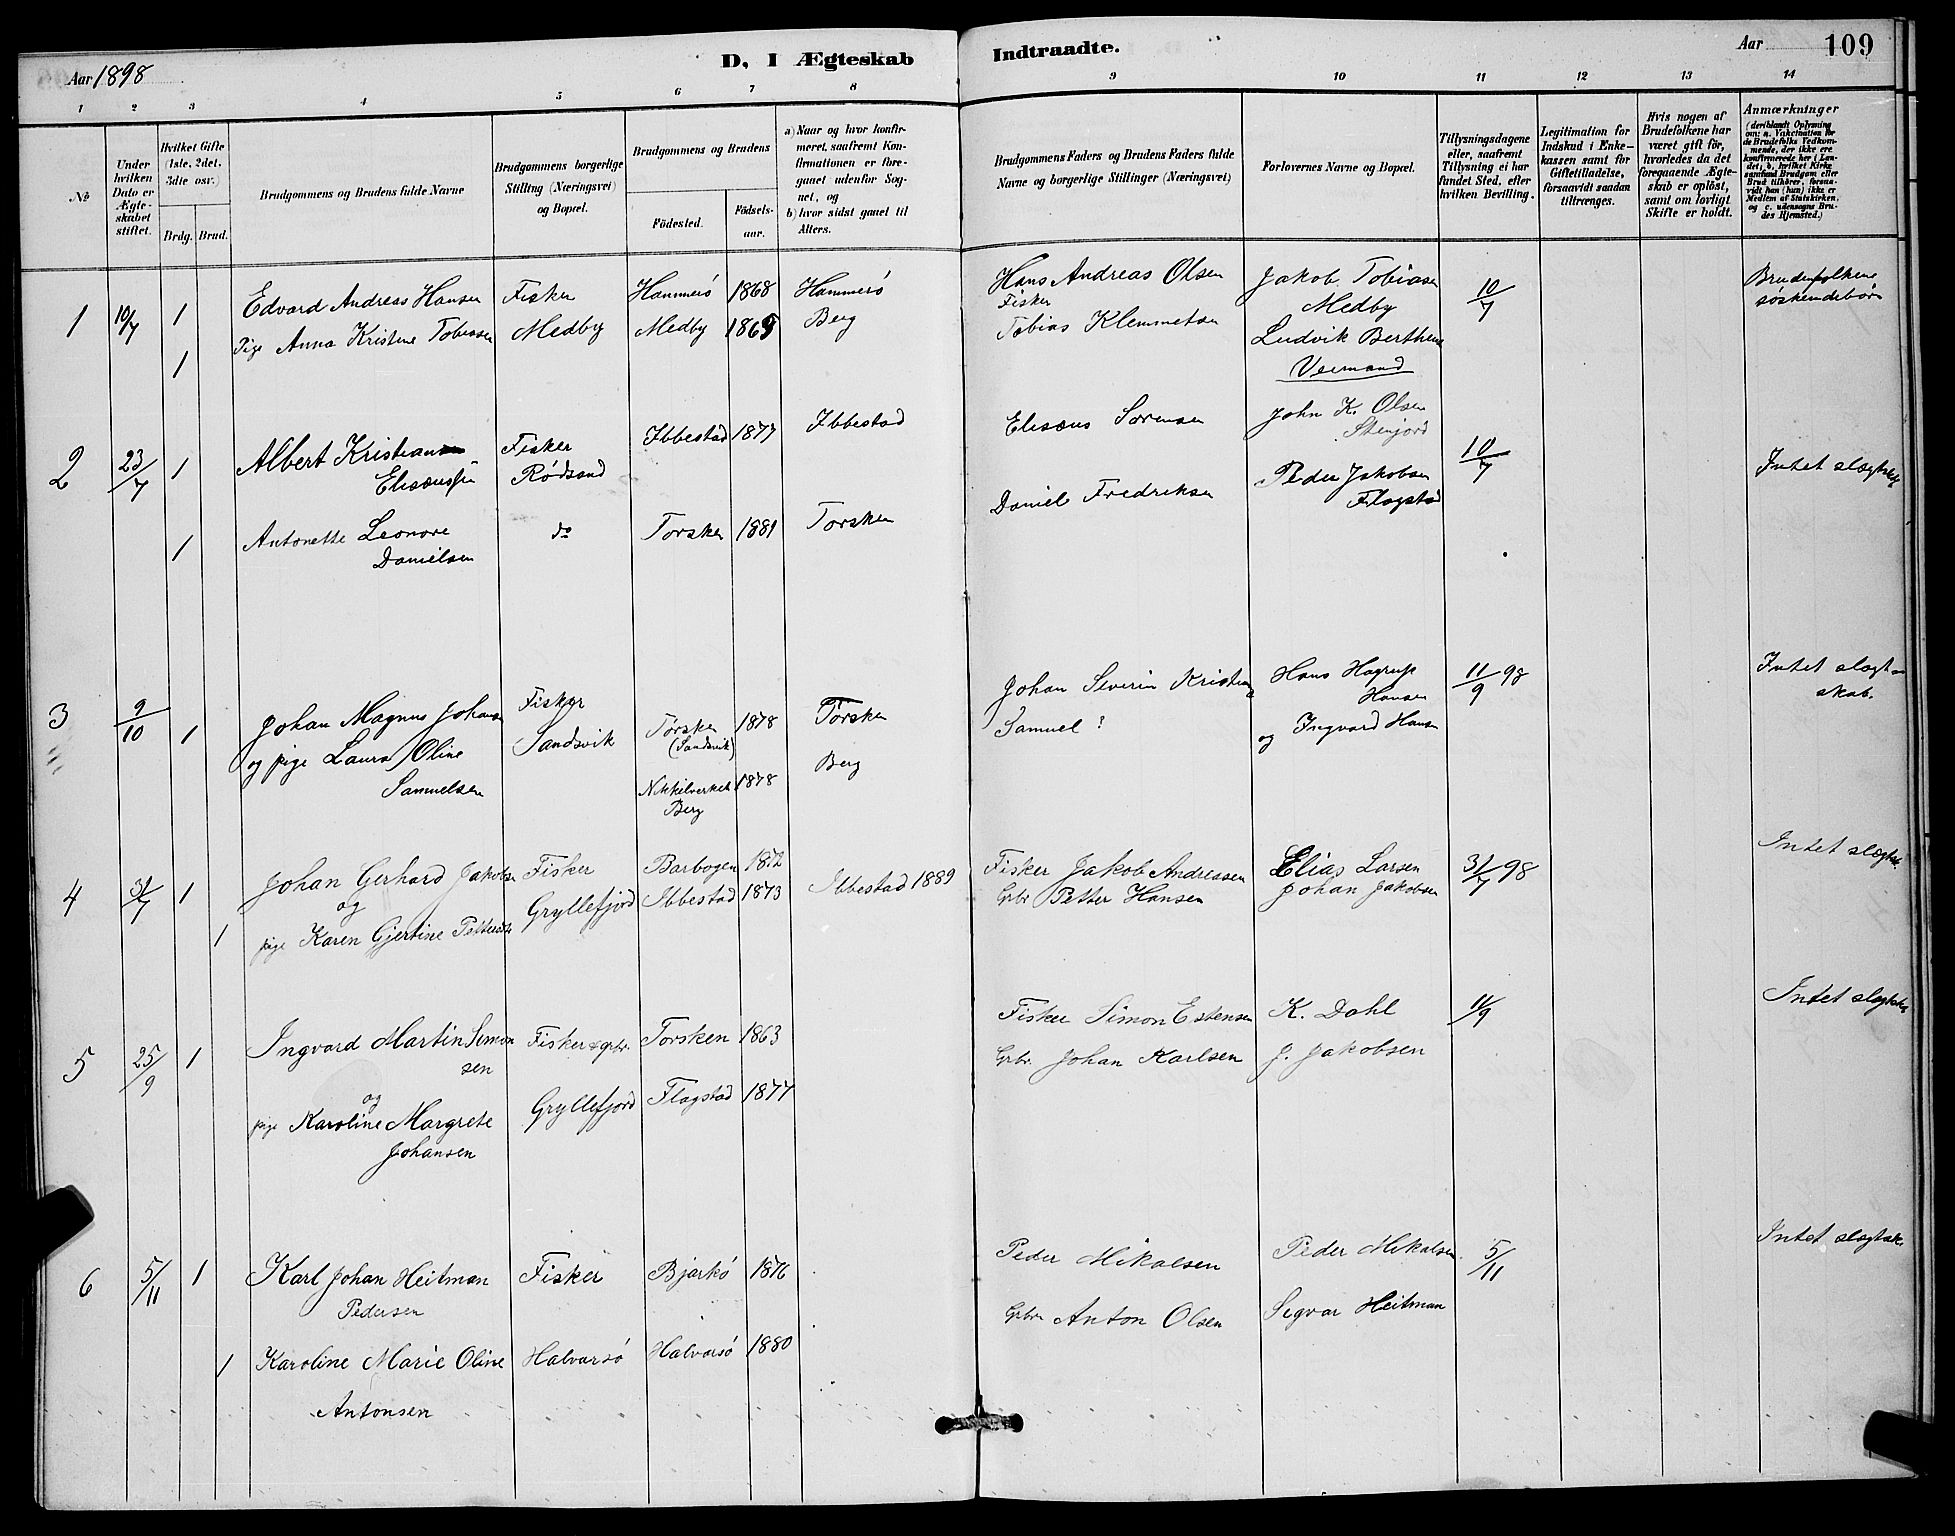 Aar 1898
D, I Ægteskab
Indtraadte.
Aar
109
1 2 3 4 5 6 7 8 9 10 11 12 13 14
No
Under hvilken Dato er Ægteskabet stiftet.
Hvilket Gifte (1ste, 2det, 3die osv.)
Brdg. Brud.
Brudgommens og Brudens fulde Navne
Brudgommens borgerlige Stilling (Næringsvei) og Bopæl.
Brudgommens og Brudens
Födested. Födselsaar.
a) Naar og hvor konfirmeret, saafremt Konfirmationen er foreganet udenfor Sognet, og
b) hvor sidst ganet til Alters.
Brudgommens Faders og Brudens Faders fulde Navne og borgerlige Stillinger (Næringsvei)
Forlovernes Navne og Bopæl.
Tillysningsdagene eller, saafremt Tillysning ei har fundet Sted, efter hvilken Bevilling.
Legitimation for Indskud i Enkekassen samt for Giftetilladelse, forsaavidt saadan tiltrænges.
Hvis nogen af Brudefolkene har været gift för, hvorledes da det foregaaende Ægteskab er oplöst, samt om lovligt Skifte er holdt.
Anmærkninger (deriblandt Oplysning om: a. Vakcination for de Brudefolks Vedkommende, der ikke ere konfirmerede her i Landet; b. hvilket Kirkesamfund Brudgom eller Brud tilhörer, forsaavidt han (hun) ikke er Medlem af Statskirken, og c. udensogns Brudes Hjemsted.)
1 10/7 1 Edvard Andreas Hansen Fisker Hammerö 1868 Hammerö Hans Andreas Olsen Jakob Tobiasen 10/7 Brudefolkene
Fisker Medby söskendebörn
1 Pige Anna Kristine Tobiasen Medby Medby 1865 Berg Tobias Klemmetsen Ludvik Bertheus
Veimand
2 23/7 1 Albert Kristian Fisker Ibbestad 1877 Ibbestad Elisæus Sörensen John K. Olsen 10/7 Intet slægtsk
Elisæussen Rödsand Stenjord
1 Antonette Leonore do Torsken 1881 Torsken Daniel Fredriksen Peder Jakobsen
Danielsen Flagstad
3 9/10 1 Johan Magnus Johansen Fisker Torsken 1878 Torsken Johan Severin Kristian Hans Hagrup 11/9 98 Intet slægt-
(Sandsvik) Hansen skab.
og pige Laura Oline Sandsvik Nikkelverket 1878 Berg Samuel ? og Ingvard Hansen
Samuelsen Berg
4 31/7 1 Johan Gerhard Jakobsen Fisker Barbogen 1872 Fisker Jakob Andreassen Elias Larsen 31/7 98 Intet slægtsk.
og
1 pige Karen Gjertine Pettersen Gryllefjord Ibbestad 1873 Ibbestad 1889 Gbr Petter Hansen Johan Jakobsen
5 25/9 1 Ingvard Martin Simon Fisker & gbr. Torsken 1863 Fisker Simon Estensen K. Dahl 11/9 Intet slægtsk
sen
og
pige Karoline Margrete Gryllefjord Flagstad 1877 Gbr. Johan Karlsen J. Jakobsen
Johansen
6 5/11 1 Karl Johan Heitman Fisker Bjarkö 1876 Peder Mikalsen Peder Mikalsen 5/11 Intet slægtsk.
Pedersen
1 Karoline Marie Oline Halvarsö Halvarsö 1880 Gbr Anton Olsen Sigvar Heitman
Antonsen